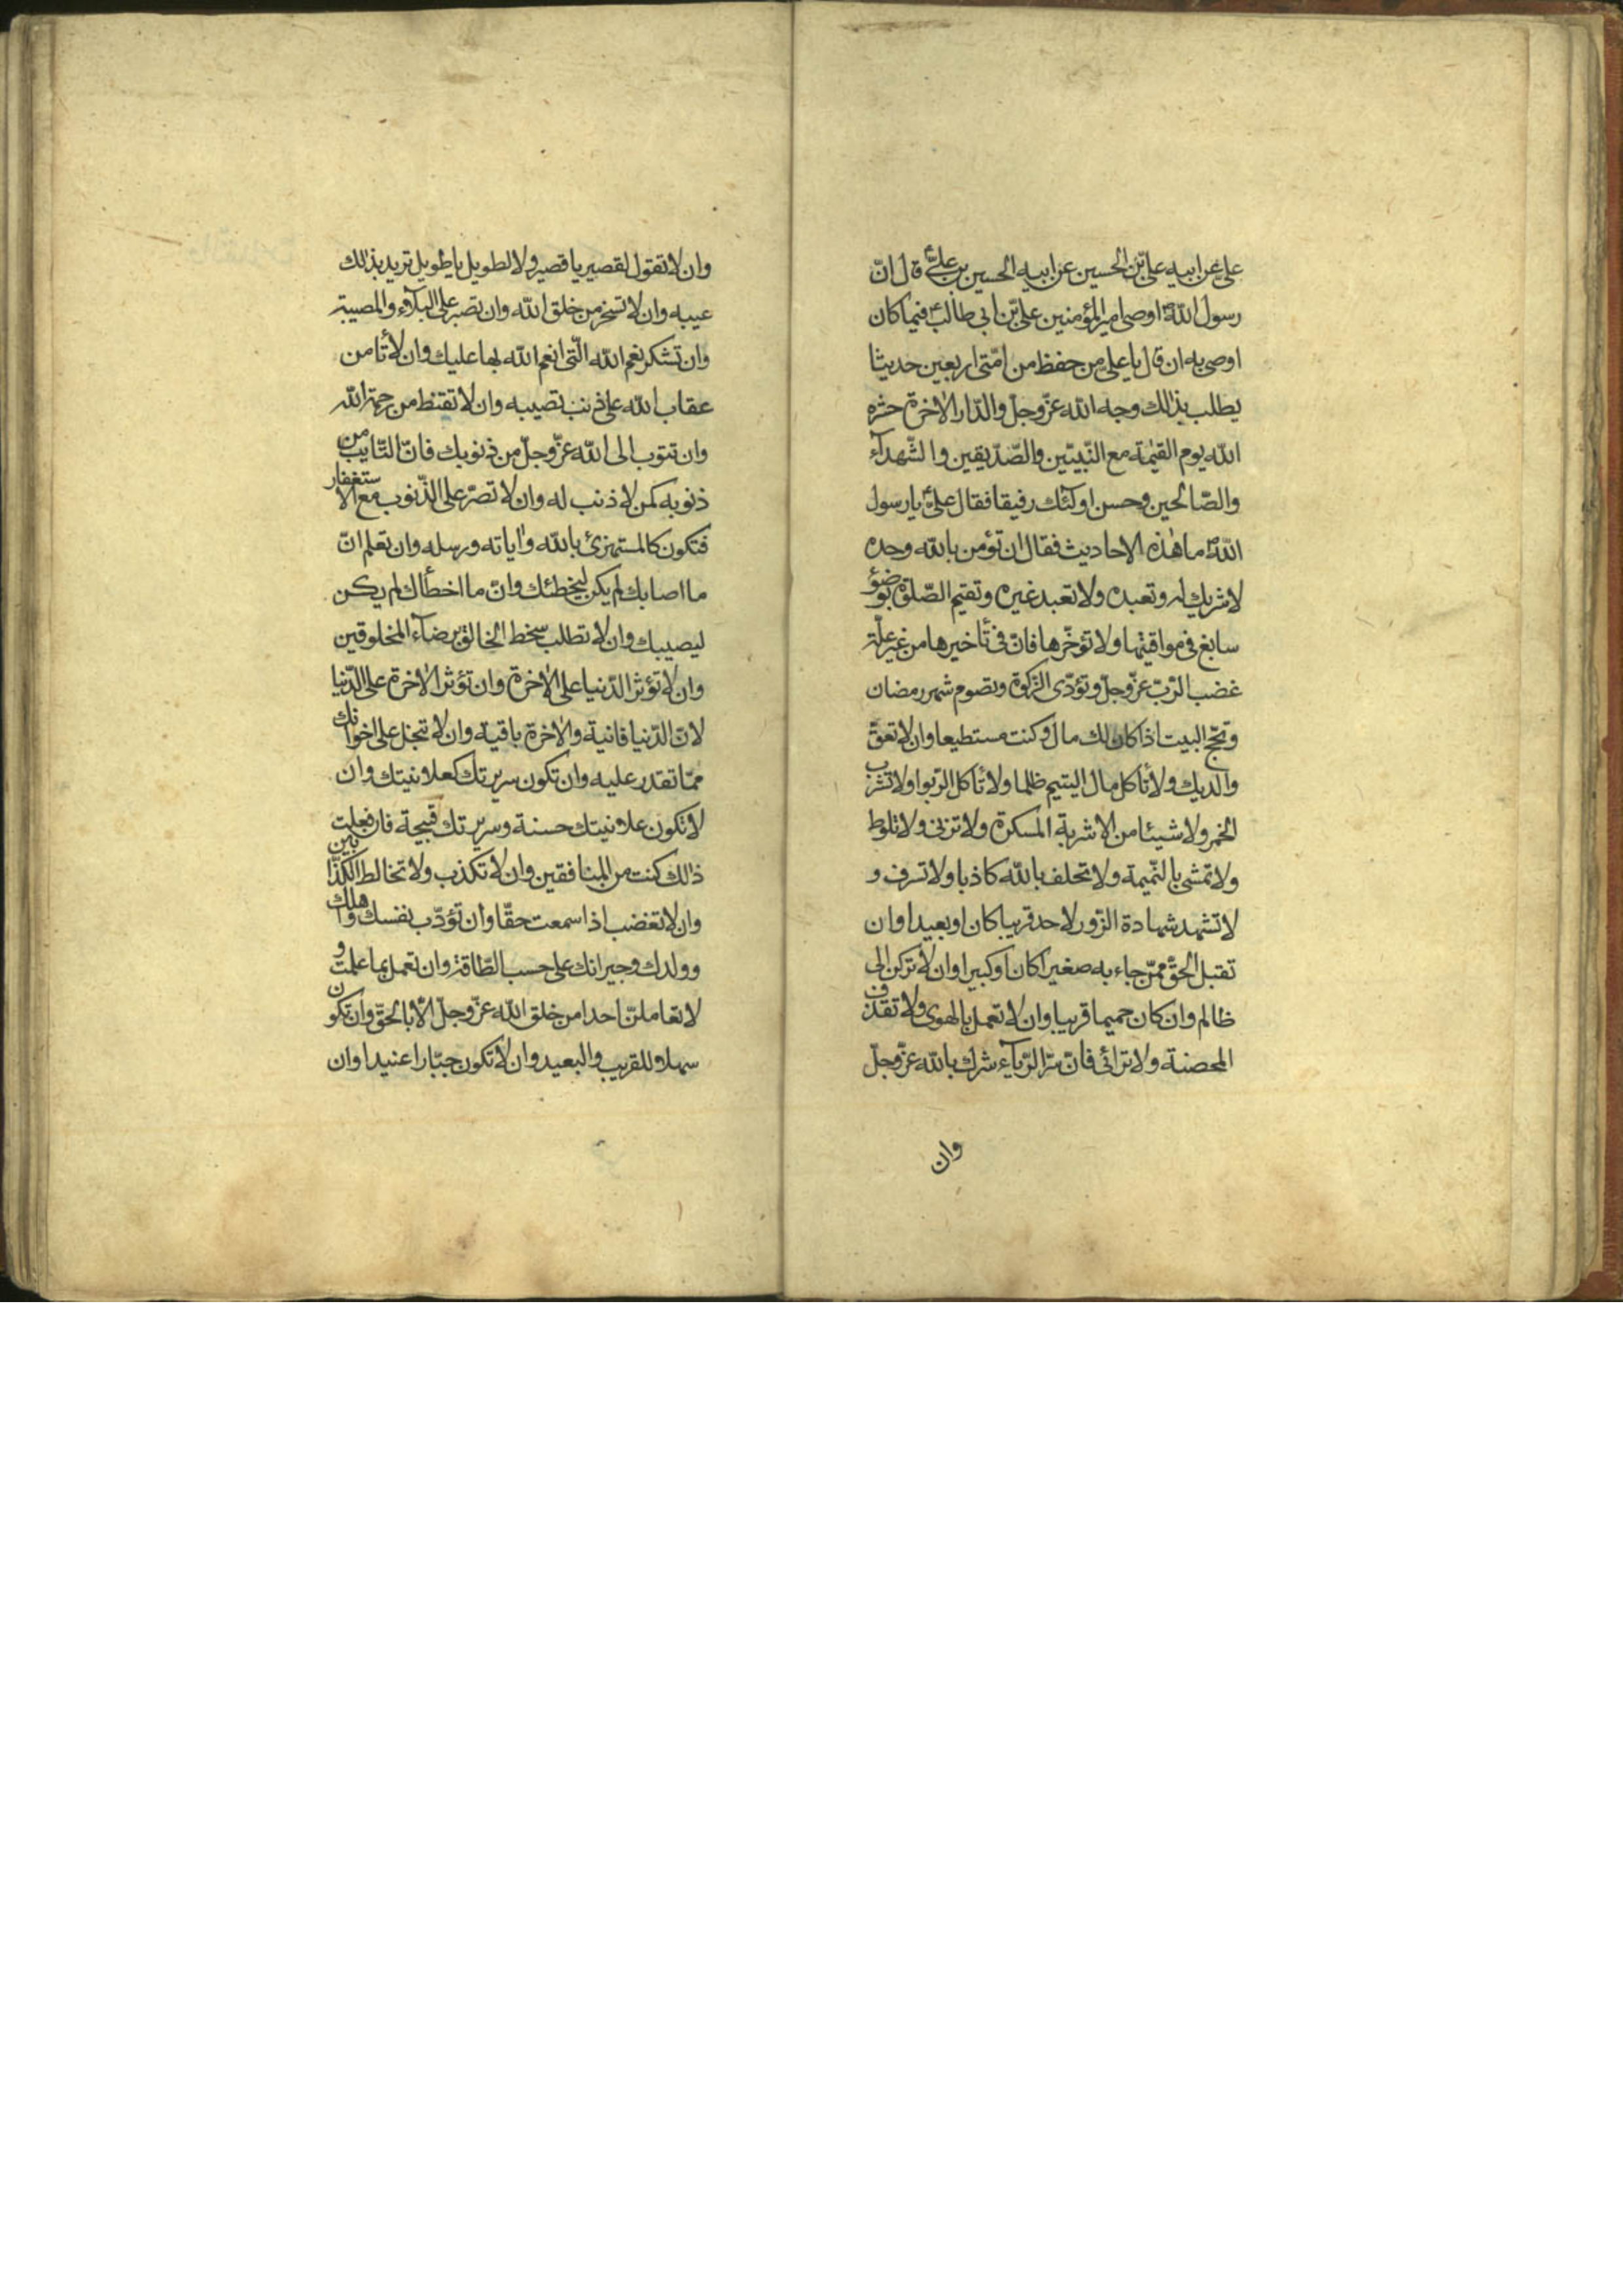 علىّ عن ابيه علىّ بن الحسين عن ابيه الحسين بن علىّ ع قال انّ
رسول اللّه ص اوصى امير المؤمنين علىّ بن ابى طالب ع فيما كان
اوصى به ان قال يا علىّ من حفظ من امّتى اربعين حديثا
يطلب بذٰلك وجه اللّه عزّ وجلّ والدّار الاٰخرة حشره
اللّه يوم القيٰمة مع النّبيّين والصّدّيقين والشّهدآء
والصّالحين وحسن اولٓئك رفيقا فقال علىّ ع يا رسول
اللّه ص ما هٰذه الاحاديث فقال ان تؤمن باللّه وحده
لا شريك له وتعبده ولا تعبد غيره وتقيم الصّلوة بوضوٴ
سابغ فى مواقيتها ولا تؤخّرها فانّ فى تأخيرها من غير علّة
غضب الرّبّ عزّ وجلّ وتؤدّى الزّكوة وتصوم شهر رمضان
وتحجّ البيت اذا كان لك مال وكنت مستطيعا وان لا تعقّ
والديك ولا تأكل مال اليتيم ظلما ولا تأكل الرّبوا ولا تشرب
الخمر ولا شيئا من الاشربة المسكرة ولا تزنى ولا تلوط
ولا تمشى بالنّميمة ولا تحلف باللّه كاذبا ولا تسرف و
لا تشهد شهادة الزّور لاحد قريبا كان او بعيدا وان
تقبل الحقّ ممّن جاء به صغيرا كان او كبيرا وان لا تركن الى
ظالم وان كان حميما قريبا وان لا تعمل بالهوى ولا تقذف
المحصنة ولا ترائى فانّ ايسر الرّيآء شرك باللّه عزّ وجلّ
وان
وان لا تقول لقصير يا قصير ولا لطويل يا طويل تريد بذٰلك
عيبه وان لا تسخر من خلق اللّه وان تصبر على البلآء والمصيبة
وان تشكر نعم اللّه الّتى انعم اللّه بها عليك وان لا تأمن
عقاب اللّه على ذنب تصيبه وان لا تقنط من رحمة اللّه
وان تتوب الى اللّه عزّ وجلّ من ذنوبك فانّ التّايب من
ذنوبه كمن لا ذنب له وان لا تصرّ على الذّنوب مع الاستغفار
فتكون كالمستهزئ باللّه واٰياته ورسله وان تعلم انّ
ما اصابك لم يكن ليخطئك وانّ ما اخطأك لم يكن
ليصيبك وان لا تطلب سخط الخالق برضآء المخلوقين
وان لا تؤثر الدّنيا على الاٰخرة وان تؤثر الاٰخرة على الدّنيا
لانّ الدّنيا فانية والاٰخرة باقية وان لا تبخل على اخوانك
ممّا تقدر عليه وان تكون سريرتك كعلانيتك وان
لا تكون علانيتك حسنة وسريرتك قبيحة فان فعلت
ذٰلك كنت من المنافقين وان لا تكذب ولا تخالط الكذّابين
وان لا تغضب اذا سمعت حقّا وان تؤدّب نفسك واهلك
وولدك وجيرانك على حسب الطّاقة وان تعمل بما علمت و
لا تعاملنّ احدا من خلق اللّه عزّ وجلّ الّا بالحقّ وان تكون
سهلا وللقريب والبعيد وان لا تكون جبّارا عنيدا وان